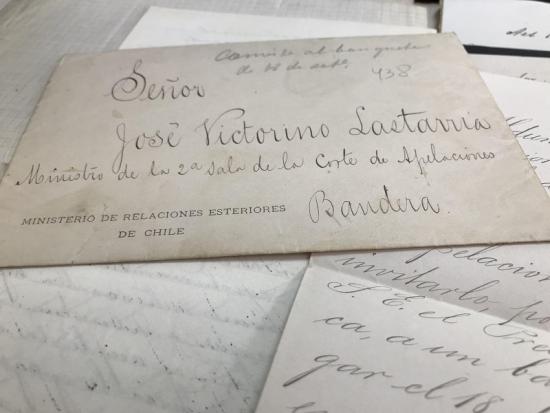 Convite al banquete
de 18 de sete. 438
Señor
José Victorino Lastarria
Ministro de la 2ª Sala de la Corte de Apelaciones
Bandera.
MINISTERIO DE RELACIONES ESTERIORES
DE CHILE
pelacion
invitarlo, po
S. E. el Pre
ca, a un ba
gar el 18